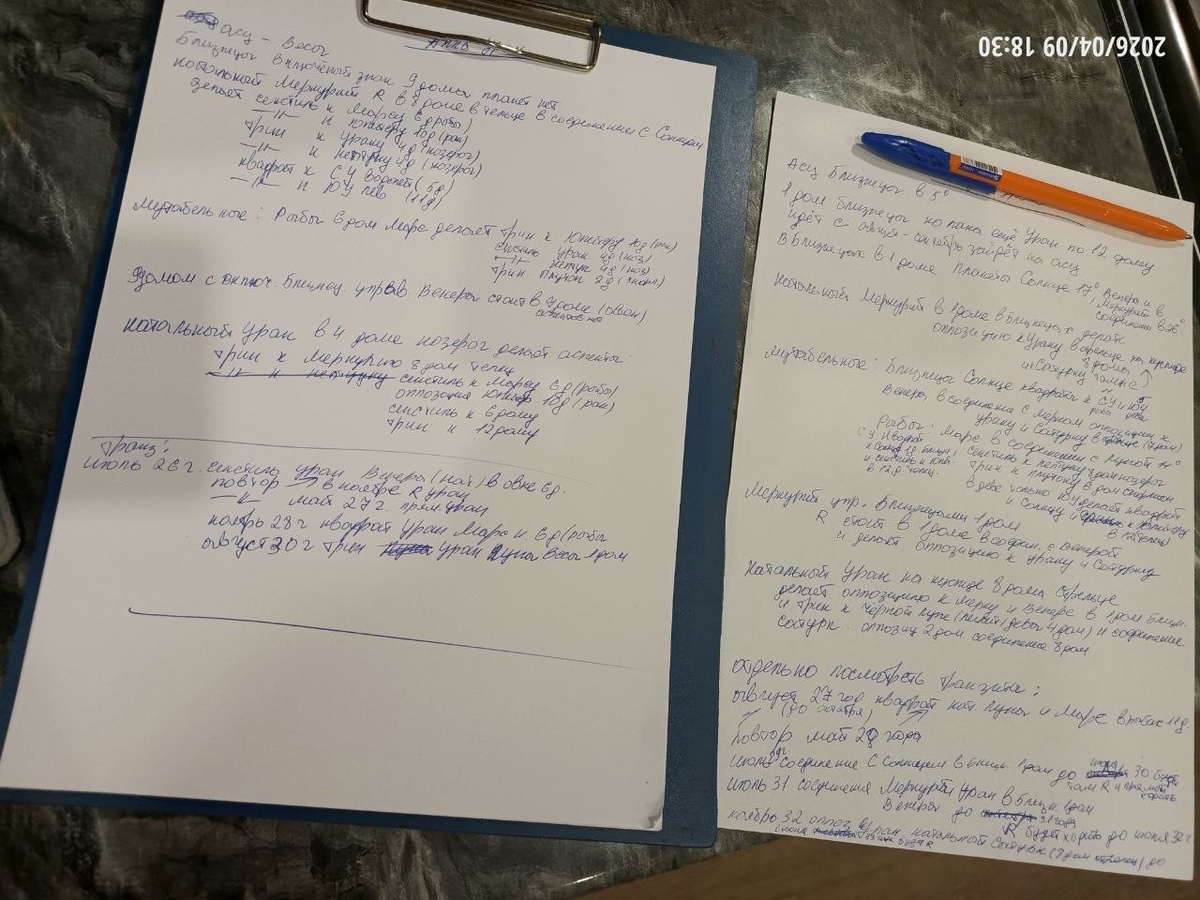 асц - Весы
Близнецы включёный знак 9 дома планет нет
натальный Меркурий R в 8 доме в тельце в соединении с Солнцем
делает секстиль к Марсу 6д (рыбы)
—"— к Юпитеру 10д (рак)
трин к Урану 4д (козерог)
—"— к Нептуну 4д (козерог)
квадрат к СУ водолей (5д)
—"— к ЮУ лев (11д)
Мутабельные: Рыбы 6 дом Марс делает трин к Юпитеру 10д (рак)
секстиль Уран 4д (коз)
—"— Нептун 4д (коз)
трин Плутон 2д (скорп)
9 домом с включ. Близнец. управ Венера стоит в доме (овен)
аспектов нет
натальный Уран в 4 доме козерог делает аспекты:
трин к Меркурию 8 дом телец
секстиль к Марсу 6д (рыбы)
оппозиция Юпитер 10д (рак)
секстиль к 6 дому
трин к 12 дому
Транз:
Июль 26 г. секстиль Уран Венера (нат) в овне 6д.
повтор —"— в ноябре R Уран
—"— май 27 г. прям. Уран
ноябрь 28 г квадрат Уран Марс и 6д (рыбы
август 30 г трин Уран Луна Весы 1 дом
2026/04/09 18:30
Асц Близнецы в 5°
1 дом Близнецы но пока ещё Уран по 12 дому
идёт с август-сентябрь зайдёт на асц
В Близнецах в 1 доме планеты Солнце 17° Венера и
Меркурий в
соединении в 26°
натальный Меркурий в 1 доме в Близнецах делает
оппозицию к Урану в стрельце на куспиде
8 дома,
и Сатурну там же
Мутабельные: Близнецы Солнце квадраты к СУ и ЮУ
рыбы дева
Венера в соединение с Мерком оппозиции к
Урану и Сатурну в
Рыбы: Марс в соединении с Луной 11°
СУ квадрат
секстиль к Нептуну 8 дом козерог
и секстиль к Юпит.
трин к Плутону 6 дом скорпион
в 12 д. телец
в деве только ЮУ делает квадрат
к Солнцу и к Юпитеру
в
Меркурий упр. Близнецами 1 дом
R стоит в 1 доме в соедин. с Венерой
и делает оппозицию к Урану и Сатурну
Натальный Уран на куспиде 8 дома Стрельце
делает оппозицию к Мерку и Венере в 1 дом Близн.
и трин к Черной Луне (Лилит) Дева 4 дом) и соединение
Сатурн. оппозиц 2 дом соединение 8 дом
отдельно посмотреть транзиты:
август 27 год квадрат нат. Луны и Марс в рыбах 11д.
—"— (до октября)
повтор май 28 года
Июль соединение с Солнцем в Близн. 1 дом до 30 будет
там R и прямой
ходить
Июль 31 соединения Меркурий Уран в Близн. 1 дом
Венера до
R будет ходить до июня 32 г
ноябрь 32 оппоз Уран натальный Сатурн (8 дом стрелец) до